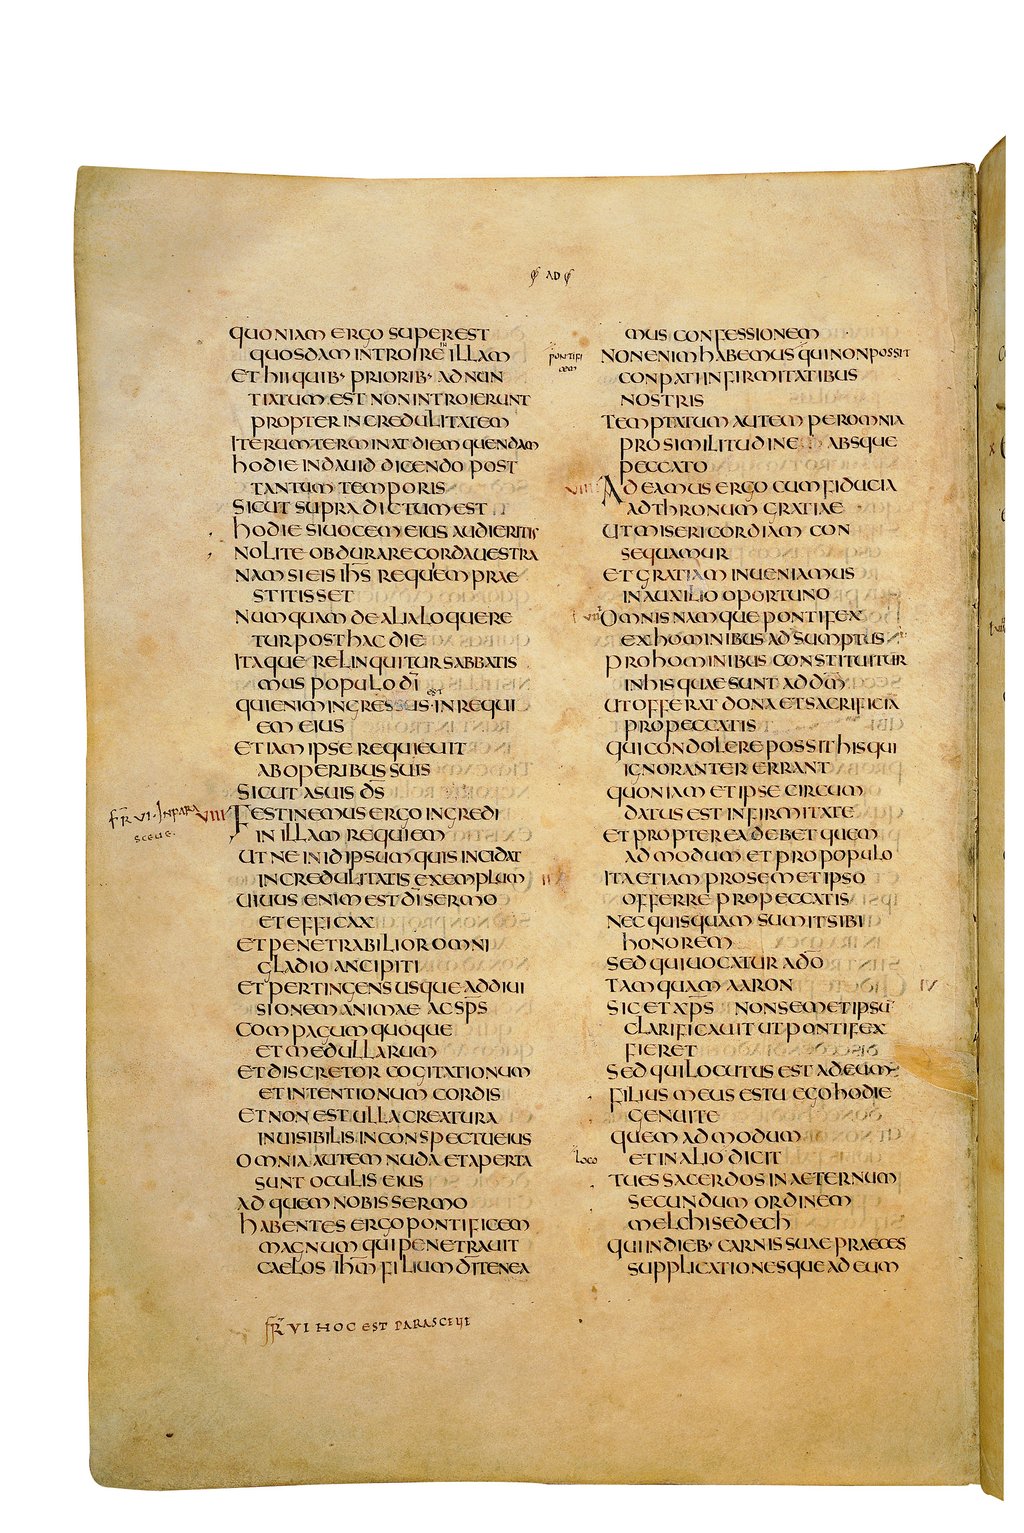 AD
QUONIAM ERGO SUPEREST
QUOSDAM INTROIRE IN ILLAM
ET HII QUIB· PRIORIB· ADNUN
TIATUM EST NON INTROIERUNT
PROPTER INCREDULITATEM
ITERUM TERMINAT DIEM QUENDAM
HODIE IN DAUID DICENDO POST
TANTUM TEMPORIS
SICUT SUPRA DICTUM EST
HODIE SI UOCEM EIUS AUDIERITIS
NOLITE OBDURARE CORDA UESTRA
NAM SI EIS IH̅S REQUEM PRAE
STITISSET
NUMQUAM DE ALIA LOQUERE
TUR POSTHAC DIE
ITAQUE RELINQUITUR SABBATIS
MUS POPULO D̅I
QUI ENIM INGRESSUS EST IN REQUI
EM EIUS
ETIAM IPSE REQUIEUIT
AB OPERIBUS SUIS
SICUT A SUIS D̅S
FR VI · IN PARA
SCEUE ·
VIII FESTINEMUS ERGO INGREDI
IN ILLAM REQUIEM
UT NE IN ID IPSUM QUIS INCIDAT
INCREDULITATIS EXEMPLUM
UIUUS ENIM EST D̅I SERMO
ET EFFICAX
ET PENETRABILIOR OMNI
GLADIO ANCIPITI
ET PERTINGENS USQUE AD DIUI
SIONEM ANIMAE AC SP̅S
COMPAGUM QUOQUE
ET MEDULLARUM
ET DISCRETOR COGITATIONUM
ET INTENTIONUM CORDIS
ET NON EST ULLA CREATURA
INUISIBILIS IN CONSPECTU EIUS
OMNIA AUTEM NUDA ET APERTA
SUNT OCULIS EIUS
AD QUEM NOBIS SERMO
HABENTES ERGO PONTIFICEM
MAGNUM QUI PENETRAUIT
CAELOS IH̅M FILIUM D̅I TENEA
FR VI HOC EST PARASCEUE
MUS CONFESSIONEM
PONTIFI
CEM
NON ENIM HABEMUS QUI NON POSSIT
CONPATI INFIRMITATIBUS
NOSTRIS
TEMPTATUM AUTEM PER OMNIA
PRO SIMILITUDINE ABSQUE
PECCATO
VIIII ADEAMUS ERGO CUM FIDUCIA
AD THRONUM GRATIAE
UT MISERICORDIAM CON
SEQUAMUR
ET GRATIAM INUENIAMUS
IN AUXILIO OPORTUNO
OMNIS NAMQUE PONTIFEX
EX HOMINIBUS ADSUMPTUS
PRO HOMINIBUS CONSTITUITUR
IN HIS QUAE SUNT AD D̅M
UT OFFERAT DONA ET SACRIFICIA
PRO PECCATIS
QUI CONDOLERE POSSIT HIS QUI
IGNORANTER ERRANT
QUONIAM ET IPSE CIRCUM
DATUS EST INFIRMITATE
ET PROPTEREA DEBET QUEM
ADMODUM ET PRO POPULO
ITA ETIAM PRO SEMET IPSO
OFFERRE PRO PECCATIS
NEC QUISQUAM SUMIT SIBI
HONOREM
SED QUI UOCATUR A D̅O
TAMQUAM AARON
SIC ET XP̅S NON SEMET IPSU̅
CLARIFICAUIT UT PONTIFEX
FIERET
SED QUI LOCUTUS EST AD EUM
FILIUS MEUS ES TU EGO HODIE
GENUI TE
QUEMADMODUM
LOCO
ET IN ALIO DICIT
TU ES SACERDOS IN AETERNUM
SECUNDUM ORDINEM
MELCHISEDECH
QUI IN DIEB· CARNIS SUAE PRAECES
SUPPLICATIONESQUE AD EUM